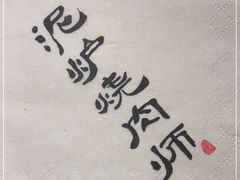 泥炉烧肉师